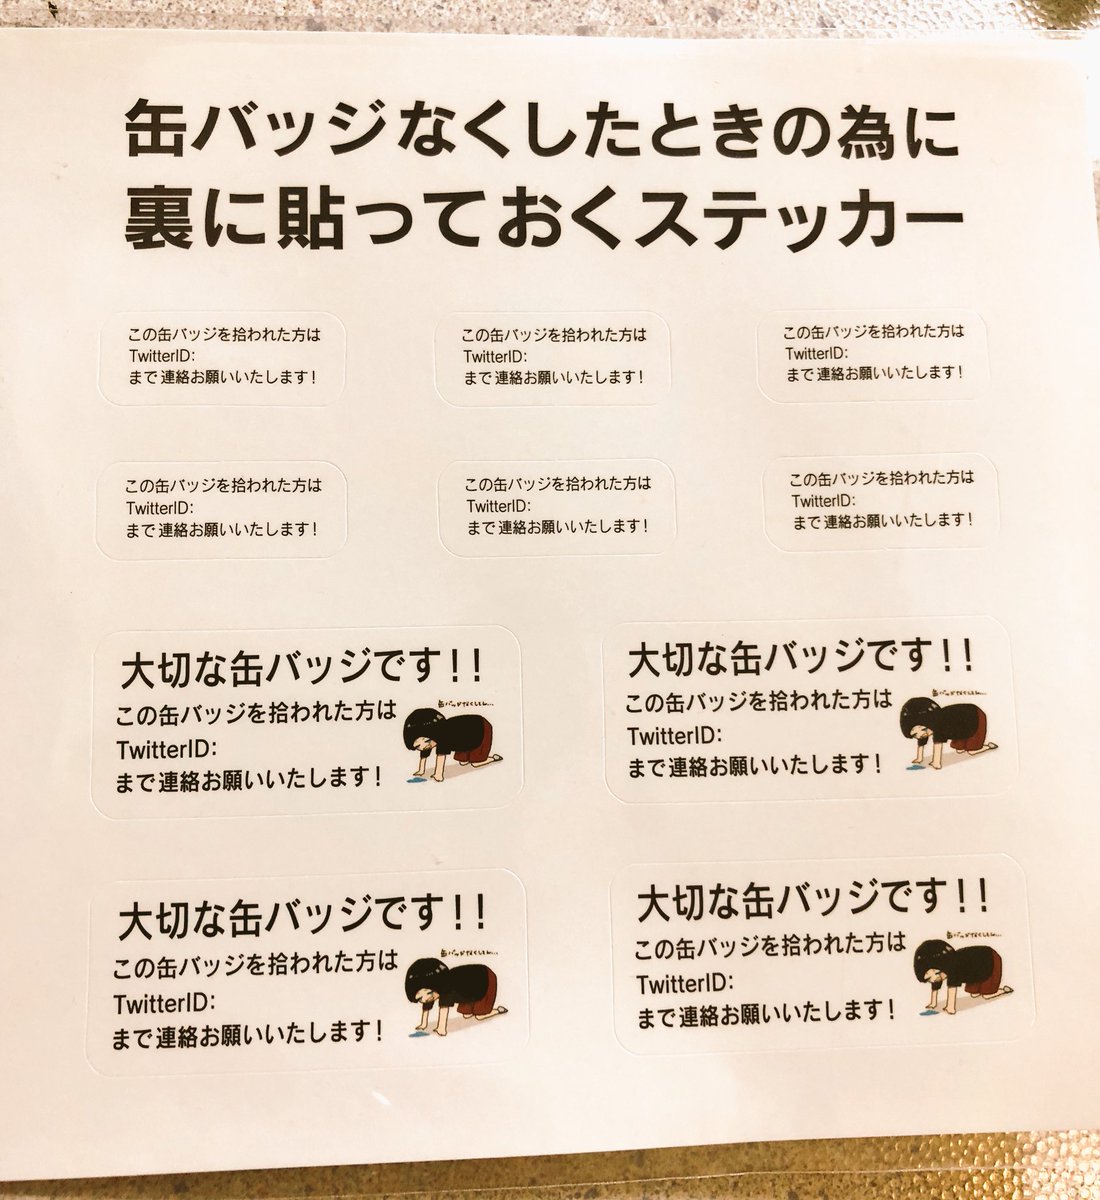 缶バッジなくしたときの為に
裏に貼っておくステッカー
この缶バッジを拾われた方は
TwitterID:
まで連絡お願いいたします！
この缶バッジを拾われた方は
TwitterID:
まで連絡お願いいたします！
この缶バッジを拾われた方は
TwitterID:
まで連絡お願いいたします！
この缶バッジを拾われた方は
TwitterID:
まで連絡お願いいたします！
この缶バッジを拾われた方は
TwitterID:
まで連絡お願いいたします！
この缶バッジを拾われた方は
TwitterID:
まで連絡お願いいたします！
大切な缶バッジです！！
この缶バッジを拾われた方は
TwitterID:
まで連絡お願いいたします！
大切な缶バッジです！！
この缶バッジを拾われた方は
TwitterID:
まで連絡お願いいたします！
大切な缶バッジです！！
この缶バッジを拾われた方は
TwitterID:
まで連絡お願いいたします！
大切な缶バッジです！！
この缶バッジを拾われた方は
TwitterID:
まで連絡お願いいたします！